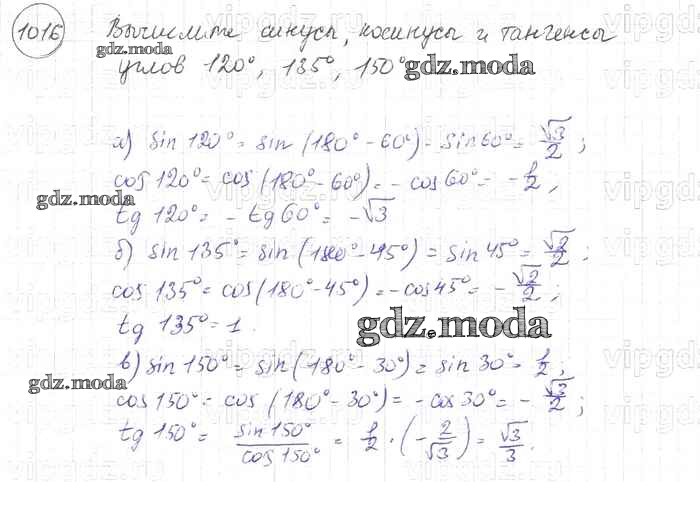 1016 Вычислите синусы, косинусы и тангенсы
gdz.moda
углов 120°, 135°, 150° gdz.moda
а) sin 120° = sin (180° - 60°) = sin 60° = √3/2 ;
cos 120° = cos (180° - 60°) = - cos 60° = - 1/2 ,
gdz.moda
tg 120° = - tg 60° = - √3
б) sin 135° = sin (180° - 45°) = sin 45° = √2/2 ;
cos 135° = cos (180° - 45°) = - cos 45° = - √2/2 ;
tg 135° = 1 .
gdz.moda
в) sin 150° = sin (180° - 30°) = sin 30° = 1/2 ;
gdz.moda
cos 150° = cos (180° - 30°) = - cos 30° = - √3/2 ;
tg 150° = sin 150° / cos 150° = 1/2 · (- 2/√3) = √3/3 .